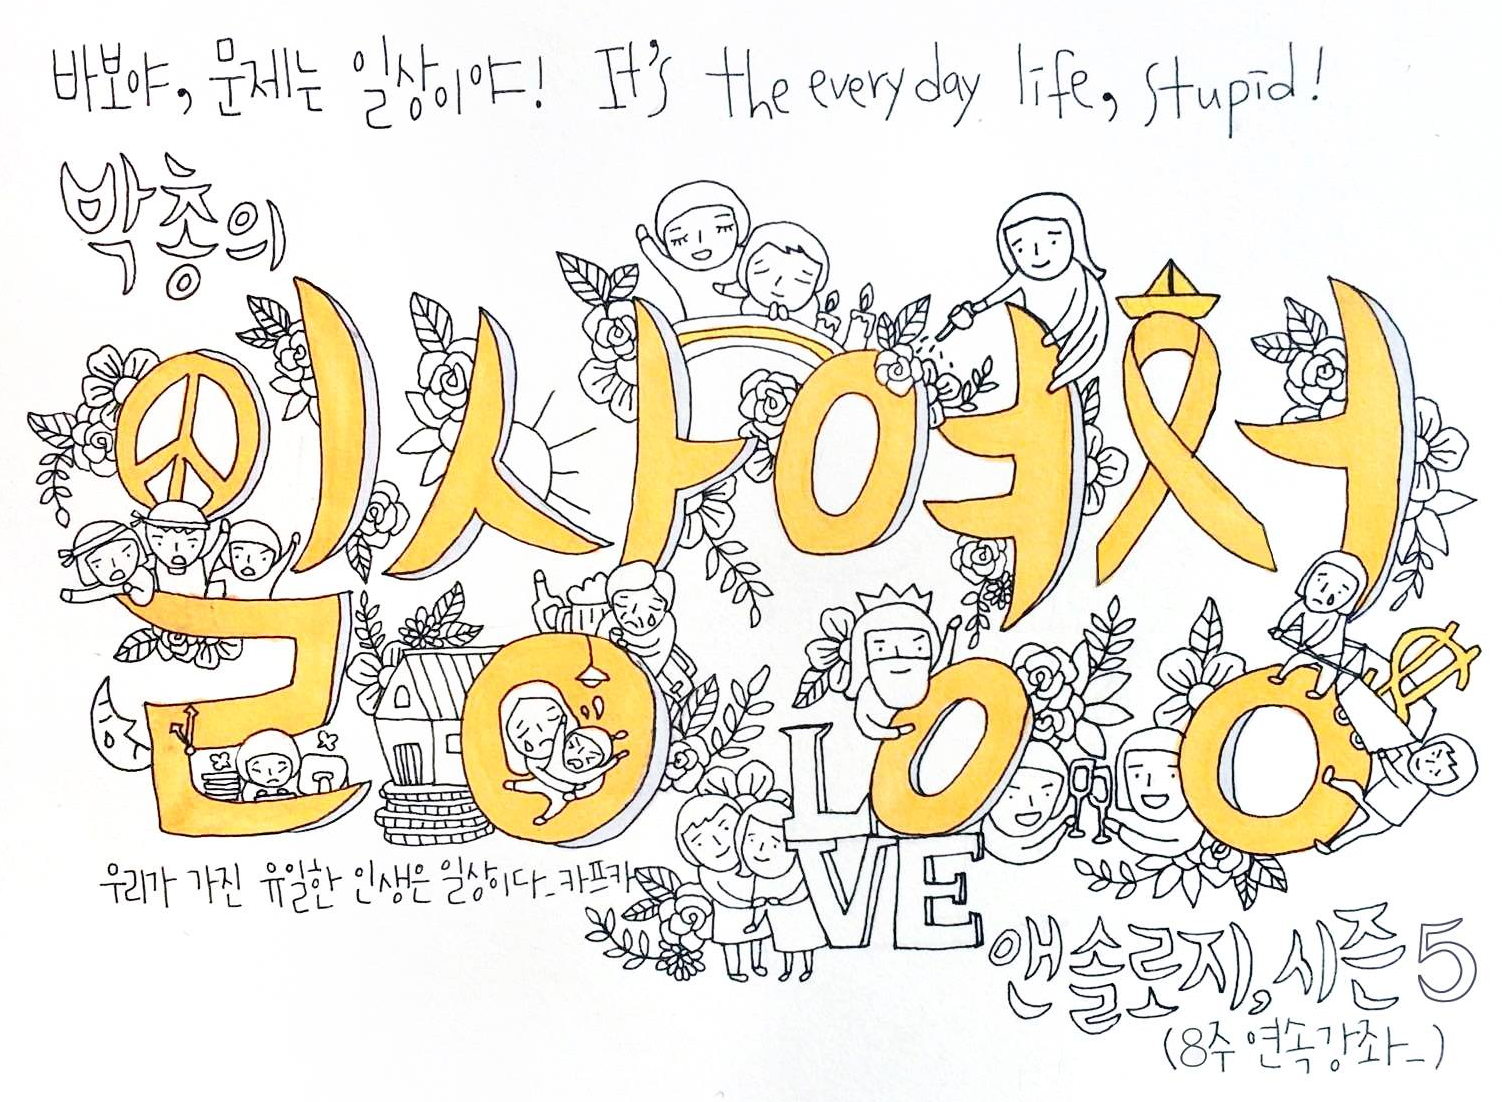 바보야, 문제는 일상이야! It's the everyday life, stupid!
박총의
일상영성
우리가 가진 유일한 인생은 일상이다_카프카
LO
VE
앤솔로지, 시즌5
(8주 연속강좌_)